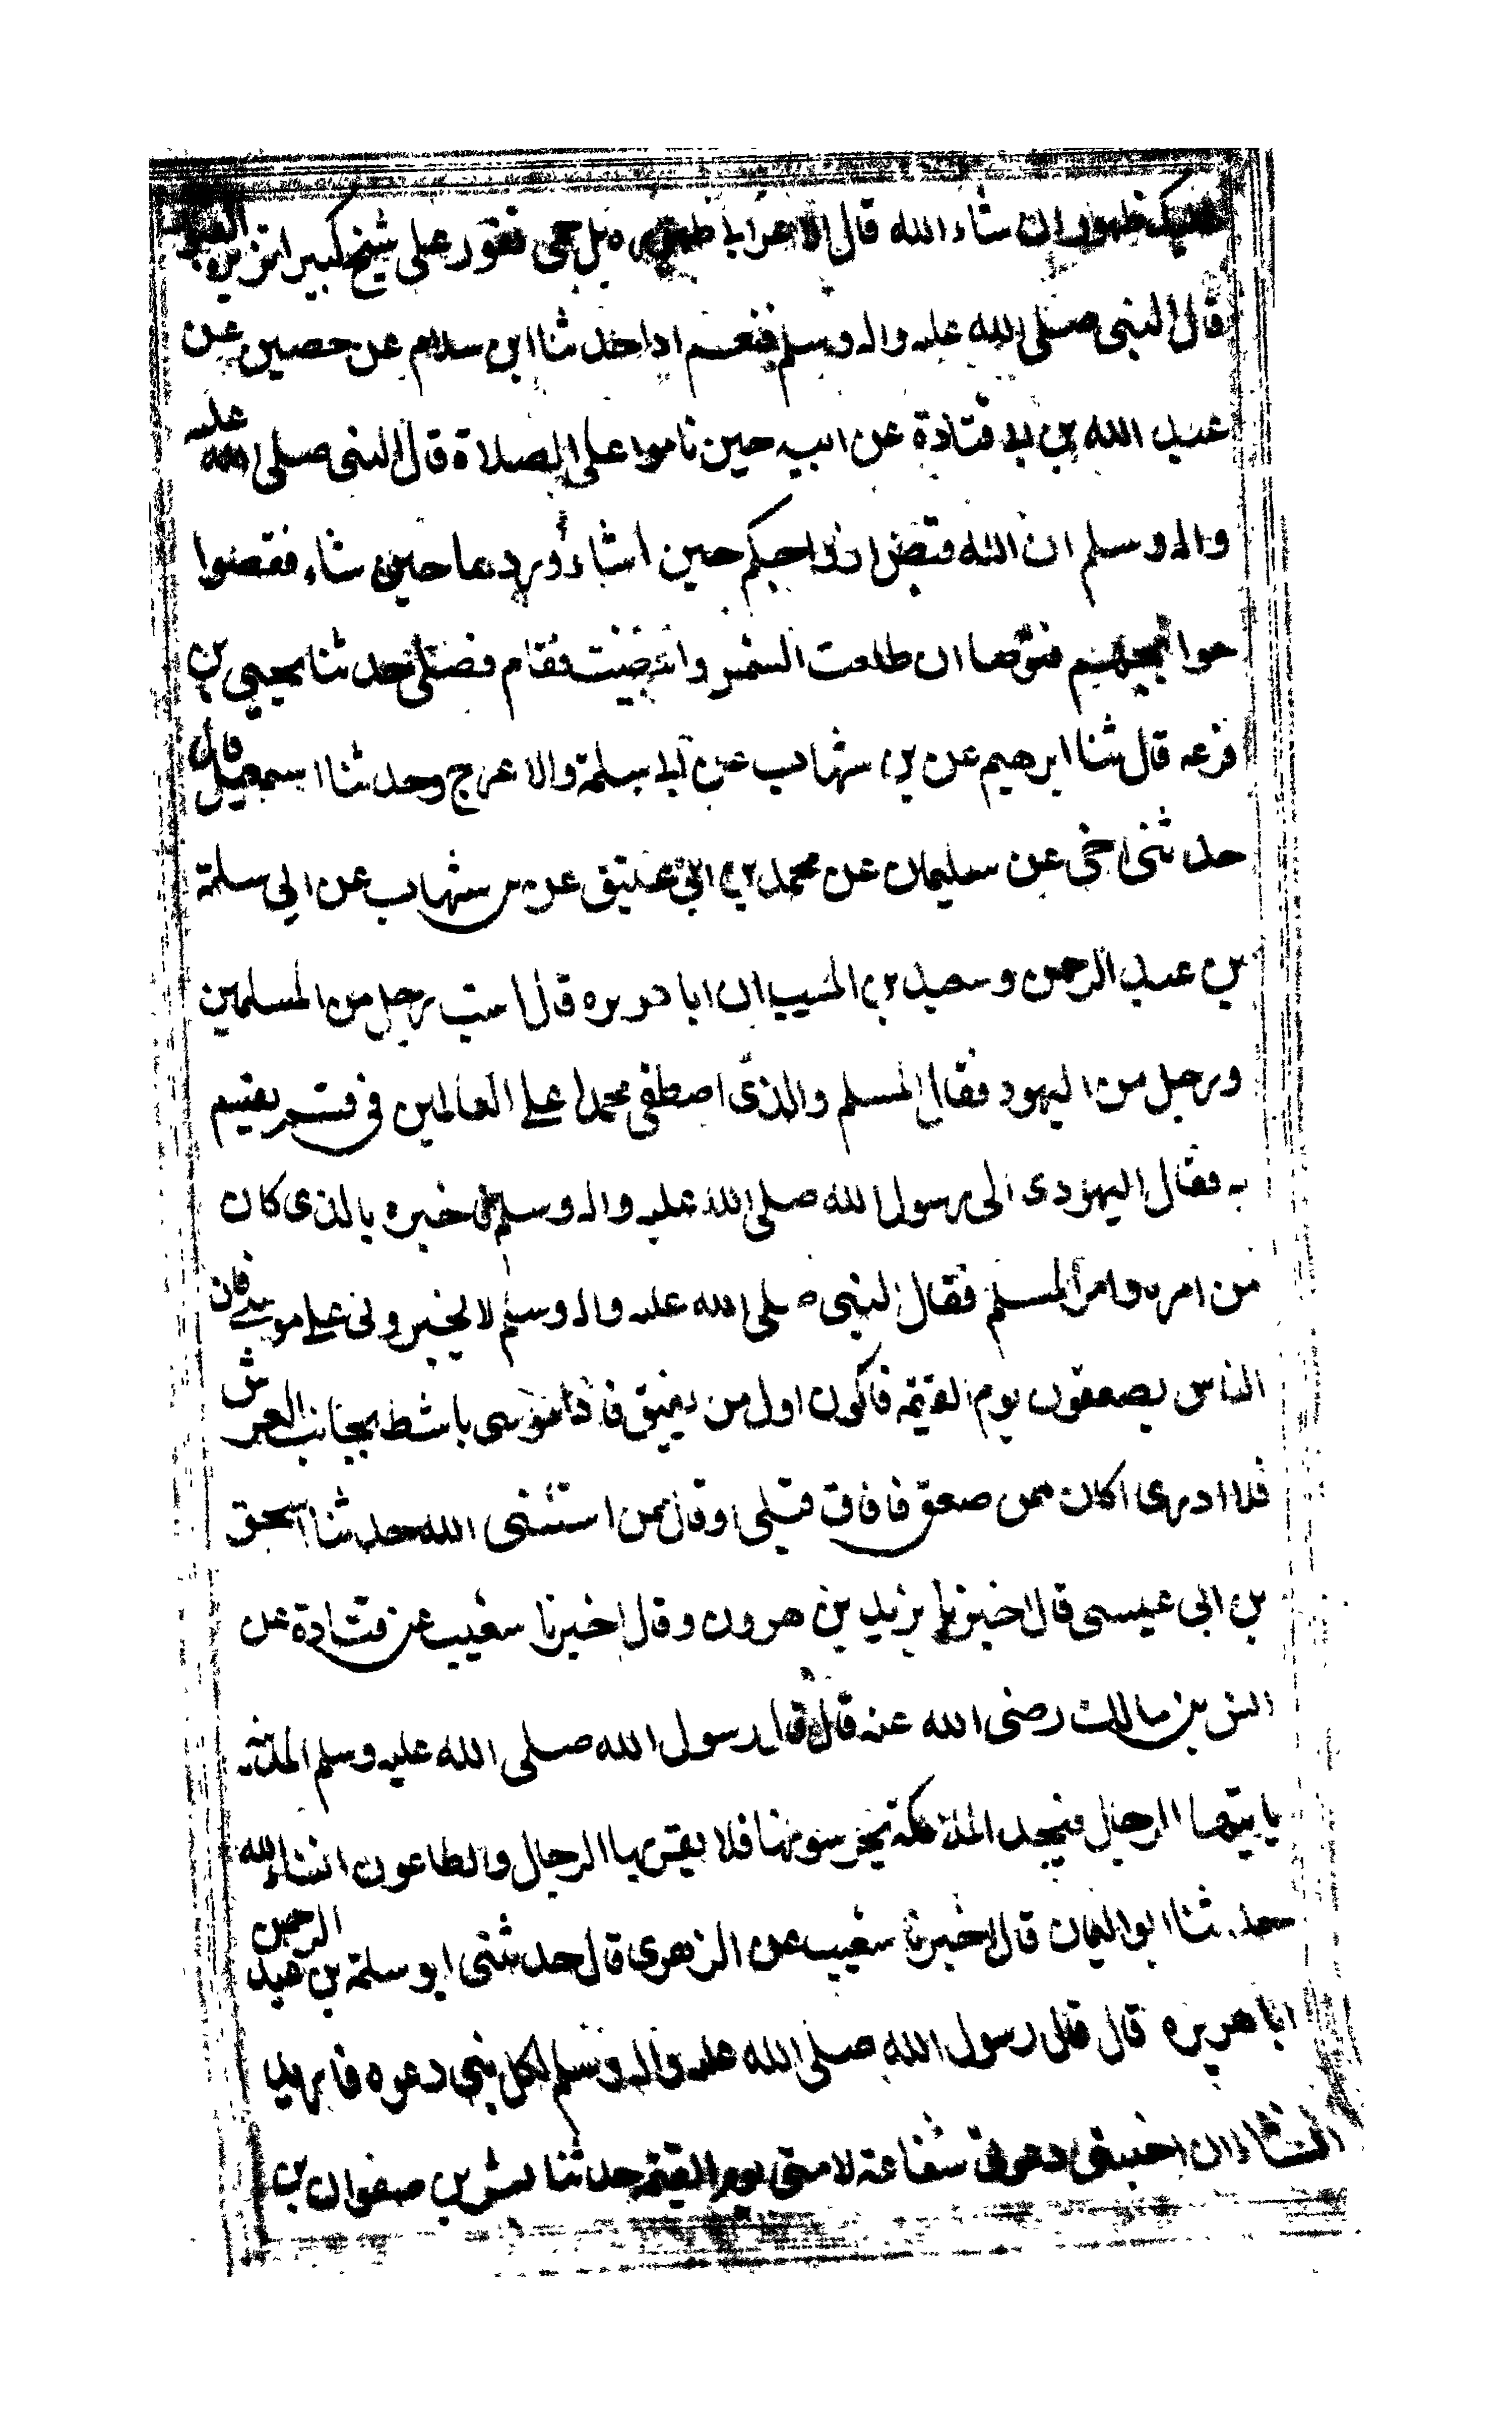 عليك طهور ان شاء الله قال الاعرابي طهور بل حمى تفور على شيخ كبير تزيره القبور
قال النبي صلى الله عليه واله وسلم فنعم اذا حدثنا ابن سلام عن حصين عن
عبد الله بن ابي قتادة عن ابيه حين ناموا على الصلاة قال النبي صلى الله عليه
واله وسلم ان الله قبض ارواحكم حين اشاء وردها حين شاء فقضوا
حوائجهم فتوضا ان طلعت الشمس وابيضت فقام فصلى حدثنا يحيى بن
قزعه قال ثنا ابرهيم عن بن شهاب عن ابي سلمة والاعرج وحدثنا اسمعيل قال
حدثنى اخى عن سليمان عن محمد بن ابى عتيق عن بن شهاب عن ابى سلمة
بن عبد الرحمن وسعيد بن المسيب ان ابا هريره قال استب رجل من المسلمين
ورجل من اليهود فقال المسلم والذى اصطفى محمدا على العالمين فى قسم يقسم
به فقال اليهودى الى رسول الله صلى الله عليه واله وسلم خبره بالذى كان
من امره وامر المسلم فقال النبى صلى الله عليه واله وسلم لا تخيرونى على موسى فان
الناس يصعقون يوم القيمة فاكون اول من يفيق فاذا موسى باشط بجانب العرش
فلا ادرى اكان ممن صعق فافاق قبلى او قال ممن استثنى الله حدثنا اسحق
بن ابى عيسى قال اخبرنا يزيد بن هرون وقال اخبرنا شعيب عن قتادة عن
انس بن مالك رضى الله عنه قال قال رسول الله صلى الله عليه وسلم المدينه
ياتيها الرجال فيجد الملئكة يحرسونها فلا يقربها الرجال والطاعون انشاء الله
حدثنا ابو اليمان قال اخبرنا شعيب عن الزهرى قال حدثنى ابو سلمة بن عبد الرحمن
ابا هريره قال قال رسول الله صلى الله عليه واله وسلم لكل نبي دعوه فاريد
انشاء ان اختبى دعوتى شفاعة لامتى يوم القيمة حدثنا يسر بن صفوان بن